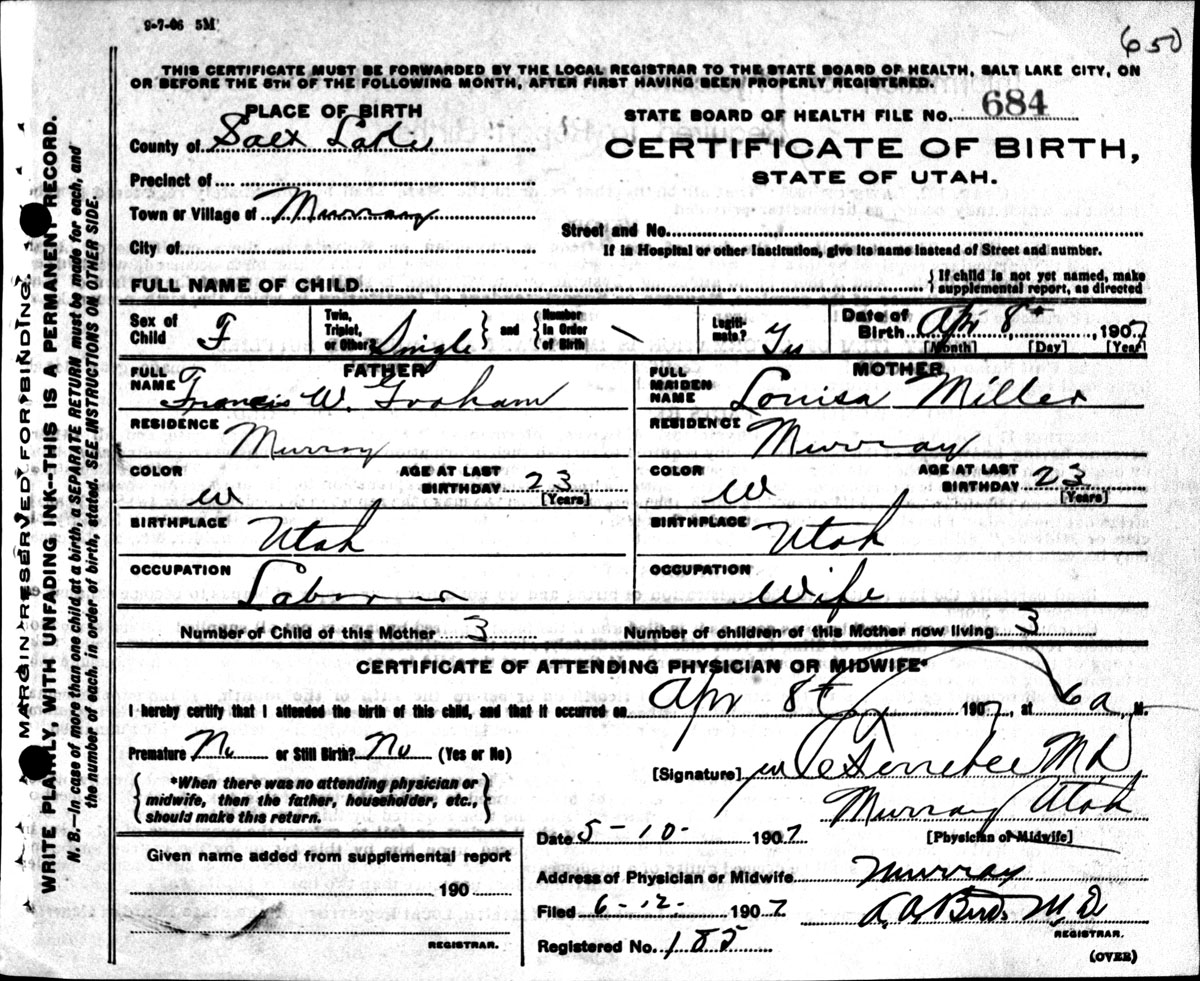 9-7-06 5M
650
THIS CERTIFICATE MUST BE FORWARDED BY THE LOCAL REGISTRAR TO THE STATE BOARD OF HEALTH, SALT LAKE CITY, ON
OR BEFORE THE 5TH OF THE FOLLOWING MONTH, AFTER FIRST HAVING BEEN PROPERLY REGISTERED.
PLACE OF BIRTH
STATE BOARD OF HEALTH FILE No. 684
County of Salt Lake
CERTIFICATE OF BIRTH,
STATE OF UTAH.
Precinct of
Town or Village of Murray
Street and No.
City of
If in Hospital or other Institution, give its name instead of Street and number.
FULL NAME OF CHILD
If child is not yet named, make
supplemental report, as directed
Sex of Child F
Twin, Triplet, or Other? Single and Number in Order of Birth
Legitimate? Yes
Date of Birth Apr 8th, 1907
[Month] [Day] [Year]
FATHER
MOTHER
FULL NAME Francis W. Graham
FULL MAIDEN NAME Louisa Miller
RESIDENCE Murray
RESIDENCE Murray
COLOR W AGE AT LAST BIRTHDAY 23 [Years]
COLOR W AGE AT LAST BIRTHDAY 23 [Years]
BIRTHPLACE Utah
BIRTHPLACE Utah
OCCUPATION Laborer
OCCUPATION Wife
Number of Child of this Mother 3
Number of children of this Mother now living 3
CERTIFICATE OF ATTENDING PHYSICIAN OR MIDWIFE*
I hereby certify that I attended the birth of this child, and that it occurred on Apr 8th 1907, at 6 a M.
Premature No or Still Birth? No (Yes or No)
*When there was no attending physician or
midwife, then the father, householder, etc.,
should make this return.
[Signature] M D
Murray Utah
Date 5-10- 1907
[Physician or Midwife]
Given name added from supplemental report
190
REGISTRAR.
Address of Physician or Midwife Murray
Filed 6-12- 1907
M. D.
REGISTRAR.
Registered No. 185
(OVER)
MARGIN RESERVED FOR BINDING.
WRITE PLAINLY, WITH UNFADING INK--THIS IS A PERMANENT RECORD.
N. B.—In case of more than one child at a birth, a SEPARATE RETURN must be made for each, and
the number of each, in order of birth, stated. SEE INSTRUCTIONS ON OTHER SIDE.